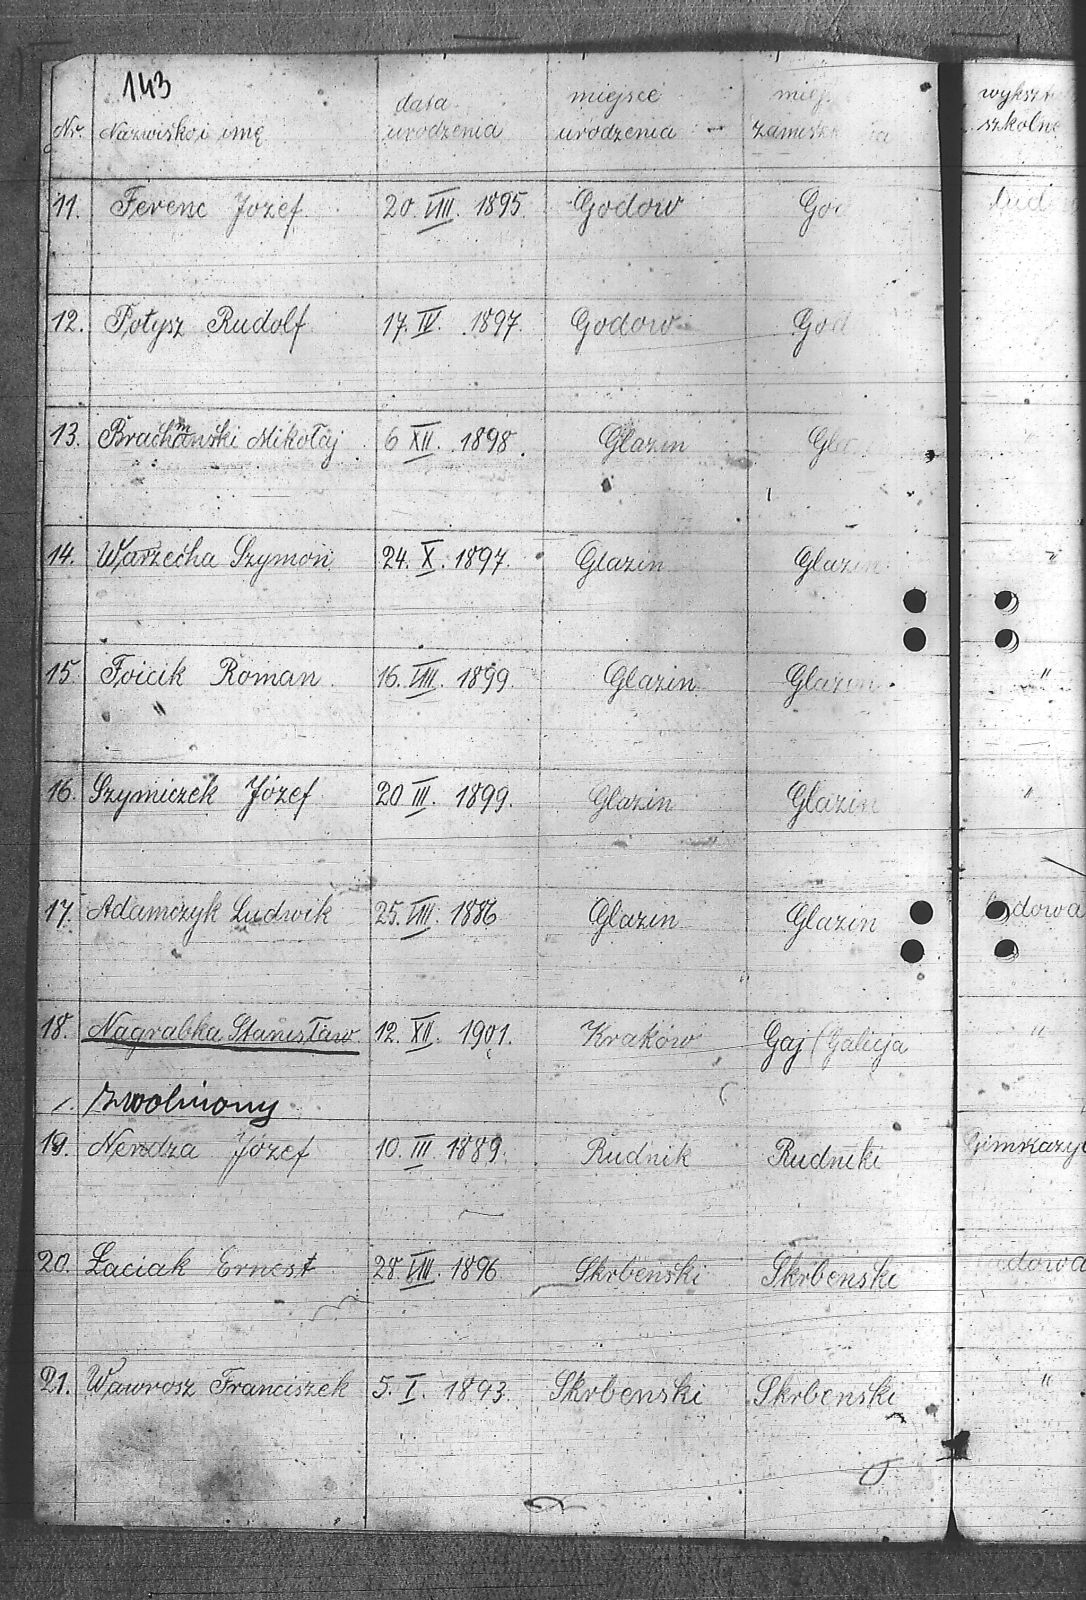 143
Nr. Nazwisko i imę data urodzenia miejsce urodzenia wykszt szkolne
11. Ferenc Józef 20. VIII. 1895 Godow God
12. Fołysz Rudolf 17. IV. 1897. Godow God
13. Brachmański Mikołaj 6 XII. 1898. Glazin Gla
14. Warzecha Szymon 24. X. 1897. Glazin Glazin "
15. Foicik Roman 16. VIII. 1899. Glazin Glazin "
16. Szymiczek Józef 20 III. 1899. Glazin Glazin "
17. Adamczyk Ludwik 25. VIII. 1886 Glazin Glazin dowa
18. Nagrabka Stanisław 12. XII. 1901. Kraków Gaj (Galicja "
zwolniony
19. Nendza Józef 10. III 1889. Rudnik Rudniki Gimnazy
20. Łaciak Ernest 28. VIII. 1896 Skrbeński Skrbenski dowa
21. Wawrosz Franciszek 5. I. 1893. Skrbenski Skrbenski "